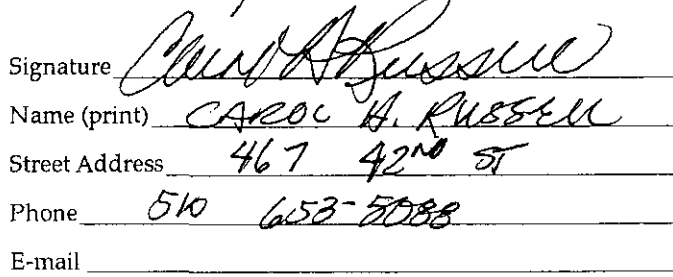 Signature Carol H Russell
Name (print) CAROL H. RUSSELL
Street Address 467 42ND ST
Phone 510 653-5088
E-mail